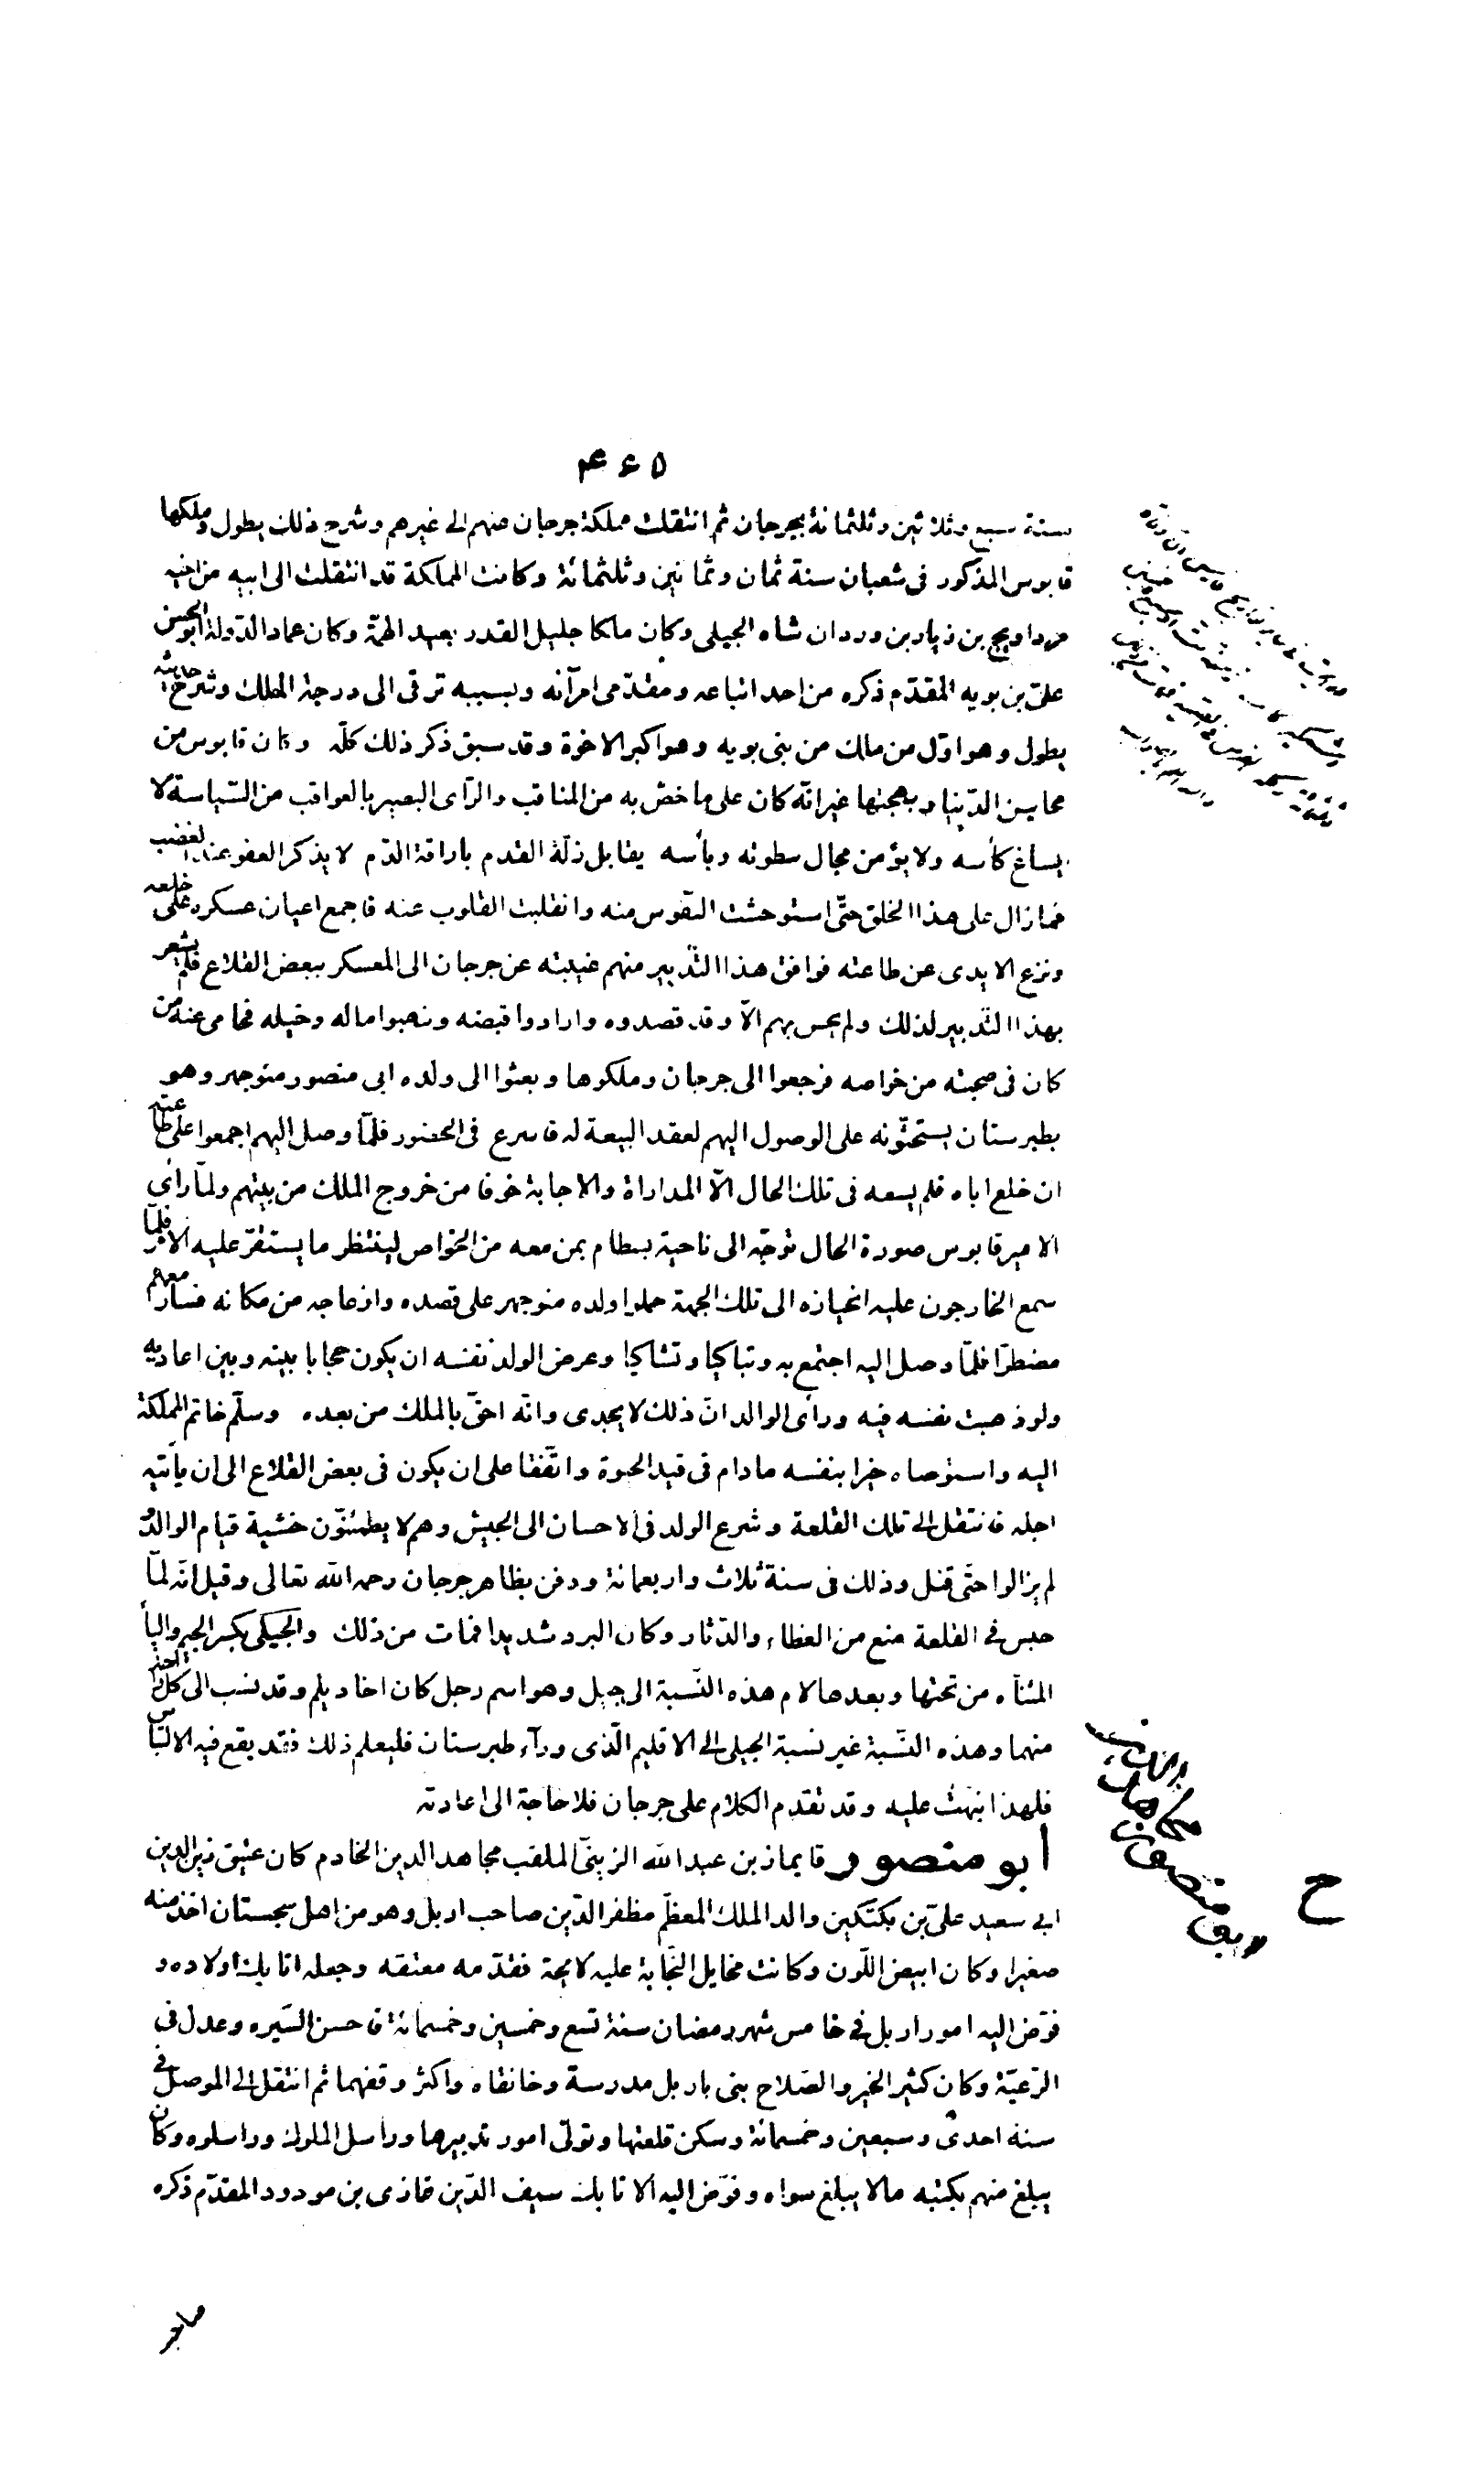 ٤٦٥
سنة سبع وثلاثين وثلثمائة بجرجان ثم انتقلت مملكة جرجان عنهم الى غيرهم وشرح ذلك يطول وملكها
قابوس المذكور فى شعبان سنة ثمان وثمانين وثلثمائة وكانت المملكة قد انتقلت الى ابيه من اخيه
مرداويج بن زيار بن وردان شاه الجيلى وكان ملكا جليل القدر بعيد الهمّة وكان عماد الدّولة ابو الحسن
علىّ بن بويه المقدّم ذكره من احد اتباعه ومقدّمى امرآئه وبسببه ترقى الى درجة الملك وشرح حاله
يطول وهو اوّل من ملك من بنى بويه وهو اكبر الاخوة وقد سبق ذكر ذلك كلّه وكان قابوس من
محاسن الدّنيا وبهجتها غير انّه كان على ما خصّ به من المناقب والرّأى البصير بالعواقب من السّياسة لا
يساغ كأسه ولا يؤمن بحال سطوته وبأسه يقابل زلّة القدم باراقة الدّم لا يذكر العفو عند الغضب
فما زال على هذا الخلق حتّى استوحشت النّفوس منه وانقلبت القلوب عنه فاجمع اعيان عسكره على خلعه
ونزع الايدى عن طاعته فوافق هذا التّدبير منهم غيبته عن جرجان الى المعسكر ببعض القلاع فلم يشعر
بهذا التّدبير لذلك ولم يحس بهم الّا وقد قصدوه وارادوا قبضه ونهبوا ماله وخيله فحامى عنه من
كان فى صحبته من خواصه فرجعوا الى جرجان وملكوها وبعثوا الى ولده ابى منصور منوجهر وهو
بطبرستان يستحثّونه على الوصول اليهم لعقد البيعة له فاسرع فى الحضور فلمّا وصل اليهم اجمعوا على طاعته
ان خلع اباه فلم يسعه فى تلك الحال الّا المداراة والاجابة خوفا من خروج الملك من بيتهم ولمّا رأى
الامير قابوس صورة الحال توجّه الى ناحية بسطام بمن معه من الخواص لينتظر ما يستقرّ عليه الامر فلمّا
سمع الخارجون عليه انحيازه الى تلك الجهة حملوا ولده منوجهر على قصده وازعاجه من مكانه فسار معهم
مضطرّا فلمّا وصل اليه اجتمع به وتباكيا وتشاكيا وعرض الولد نفسه ان يكون حجابا بينه وبين اعاديه
ولو ذهبت نفسه فيه ورأى الوالد انّ ذلك لا يجدى وانّه احقّ بالملك من بعده وسلّم خاتم المملكة
اليه واستوصاه خيرا بنفسه ما دام فى قيد الحيوة واتّفقا على ان يكون فى بعض القلاع الى ان يأتيه
اجله فانتقل الى تلك القلعة وشرع الولد فى الاحسان الى الجيش وهم لا يطمئنّون خشية قيام الوالد و
لم يزالوا حتّى قتل وذلك فى سنة ثلاث واربعمائة ودفن بظاهر جرجان رحمه الله تعالى وقيل انّه لمّا
حبس فى القلعة منع من الغطاء والدّثار وكان البرد شديدا فمات من ذلك والجيلى بكسر الجيم واليأ
المثناه من تحتها وبعدها لام هذه النّسبة الى جيل وهو اسم رجل كان اخا ديلم وقد نسب الى كل واحد
منهما وهذه النّسبة غير نسبة الجيلى الى الاقليم الّذى ورآء طبرستان فليعلم ذلك فقد يقع فيه الالتباس
فلهذا نبّهت عليه وقد تقدم الكلام على جرجان فلا حاجة الى اعادته
أبو منصور قايماز بن عبد الله الزينىّ الملقب مجاهد الدين الخادم كان عتيق زين الدين
ابى سعيد علىّ بن بكتكين والد الملك المعظّم مظفر الدّين صاحب اربل وهو من اهل سجستان اخذ منه
صغيرا وكان ابيض اللّون وكانت مخايل النّجابة عليه لايحة فقدّمه معتقه وجعله اتابك اولاده و
فوّض اليه امور اربل فى خامس شهر رمضان سنة تسع وخمسين وخمسمائة فاحسن السّيره وعدل فى
الرّعيّة وكان كثير الخير والصّلاح بنى باربل مدرسة وخانقاه واكثر وقفهما ثم انتقل الى الموصل فى
سنة احدى وسبعين وخمسمائة وسكن قلعتها وتولّى امور تدبيرها وراسل الملوك وراسلوه وكان
يبلغ منهم بكتبه ما لا يبلغ سواه وفوّض اليه الاتابك سيف الدّين غازى بن مودود المقدّم ذكره
ح
ابو منصور